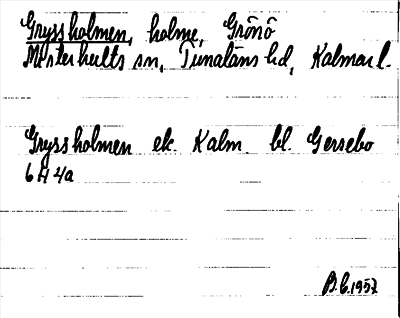 Gryssholmen, holme, Grönö
Misterhults sn, Tunaläns hd, Kalmar l.
Gryssholmen ek. Kalm. bl. Gersebo
6H4a
B.E. 1957